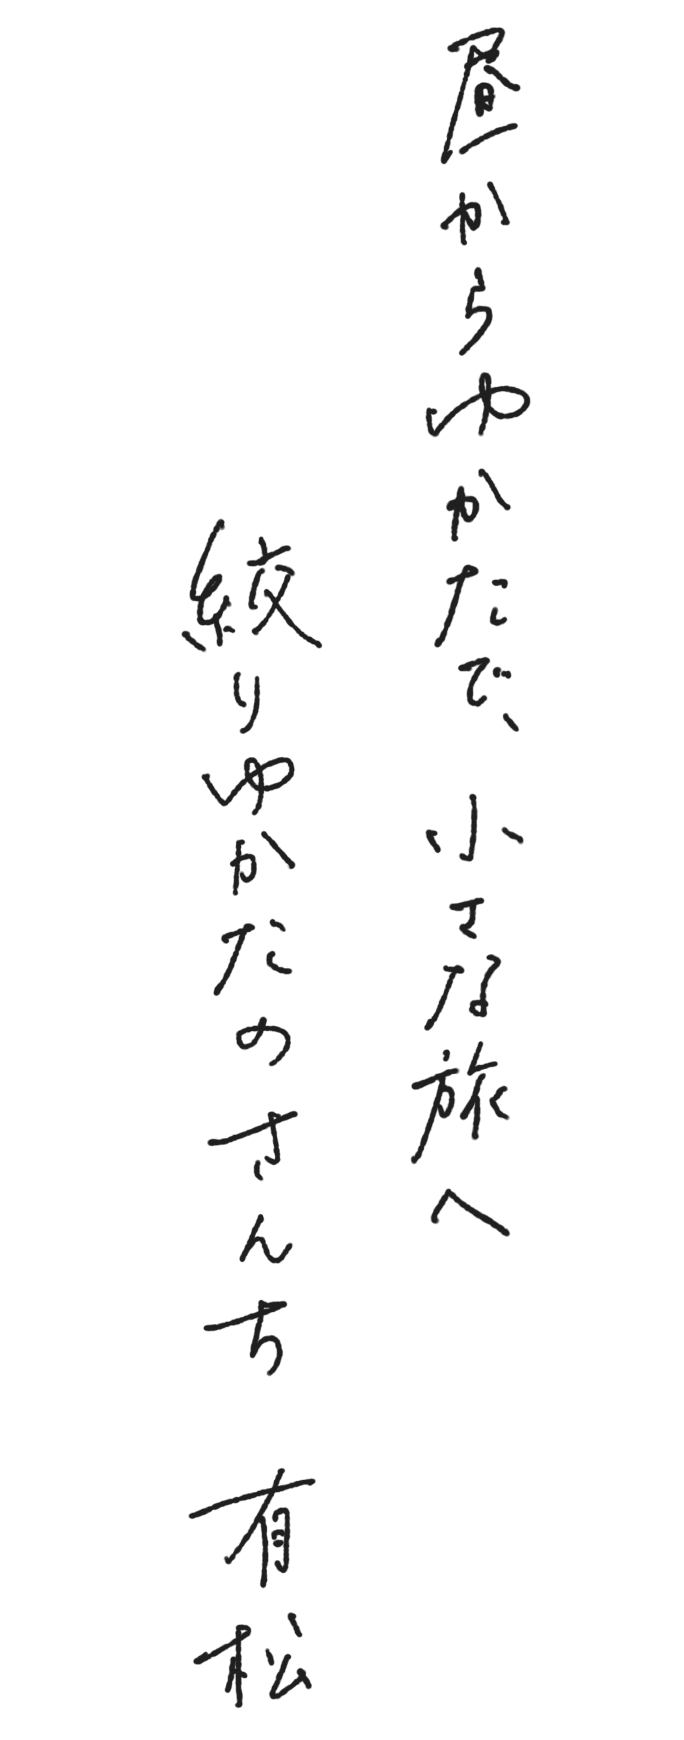 昼からゆかたで、小さな旅へ
絞りゆかたのさんち 有松